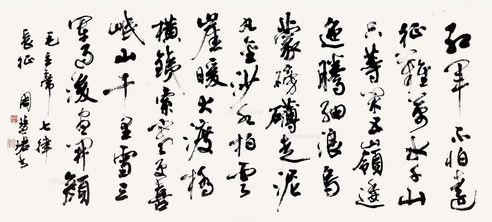 红军不怕遠
征難萬水千山
只等闲五嶺逶
迤腾细浪乌
蒙磅礴走泥
丸金沙水拍雲
崖暖大渡橋
横鐵索寒更喜
岷山千里雪三
军过後尽開顔
毛主席七律
長征 周慧珺书